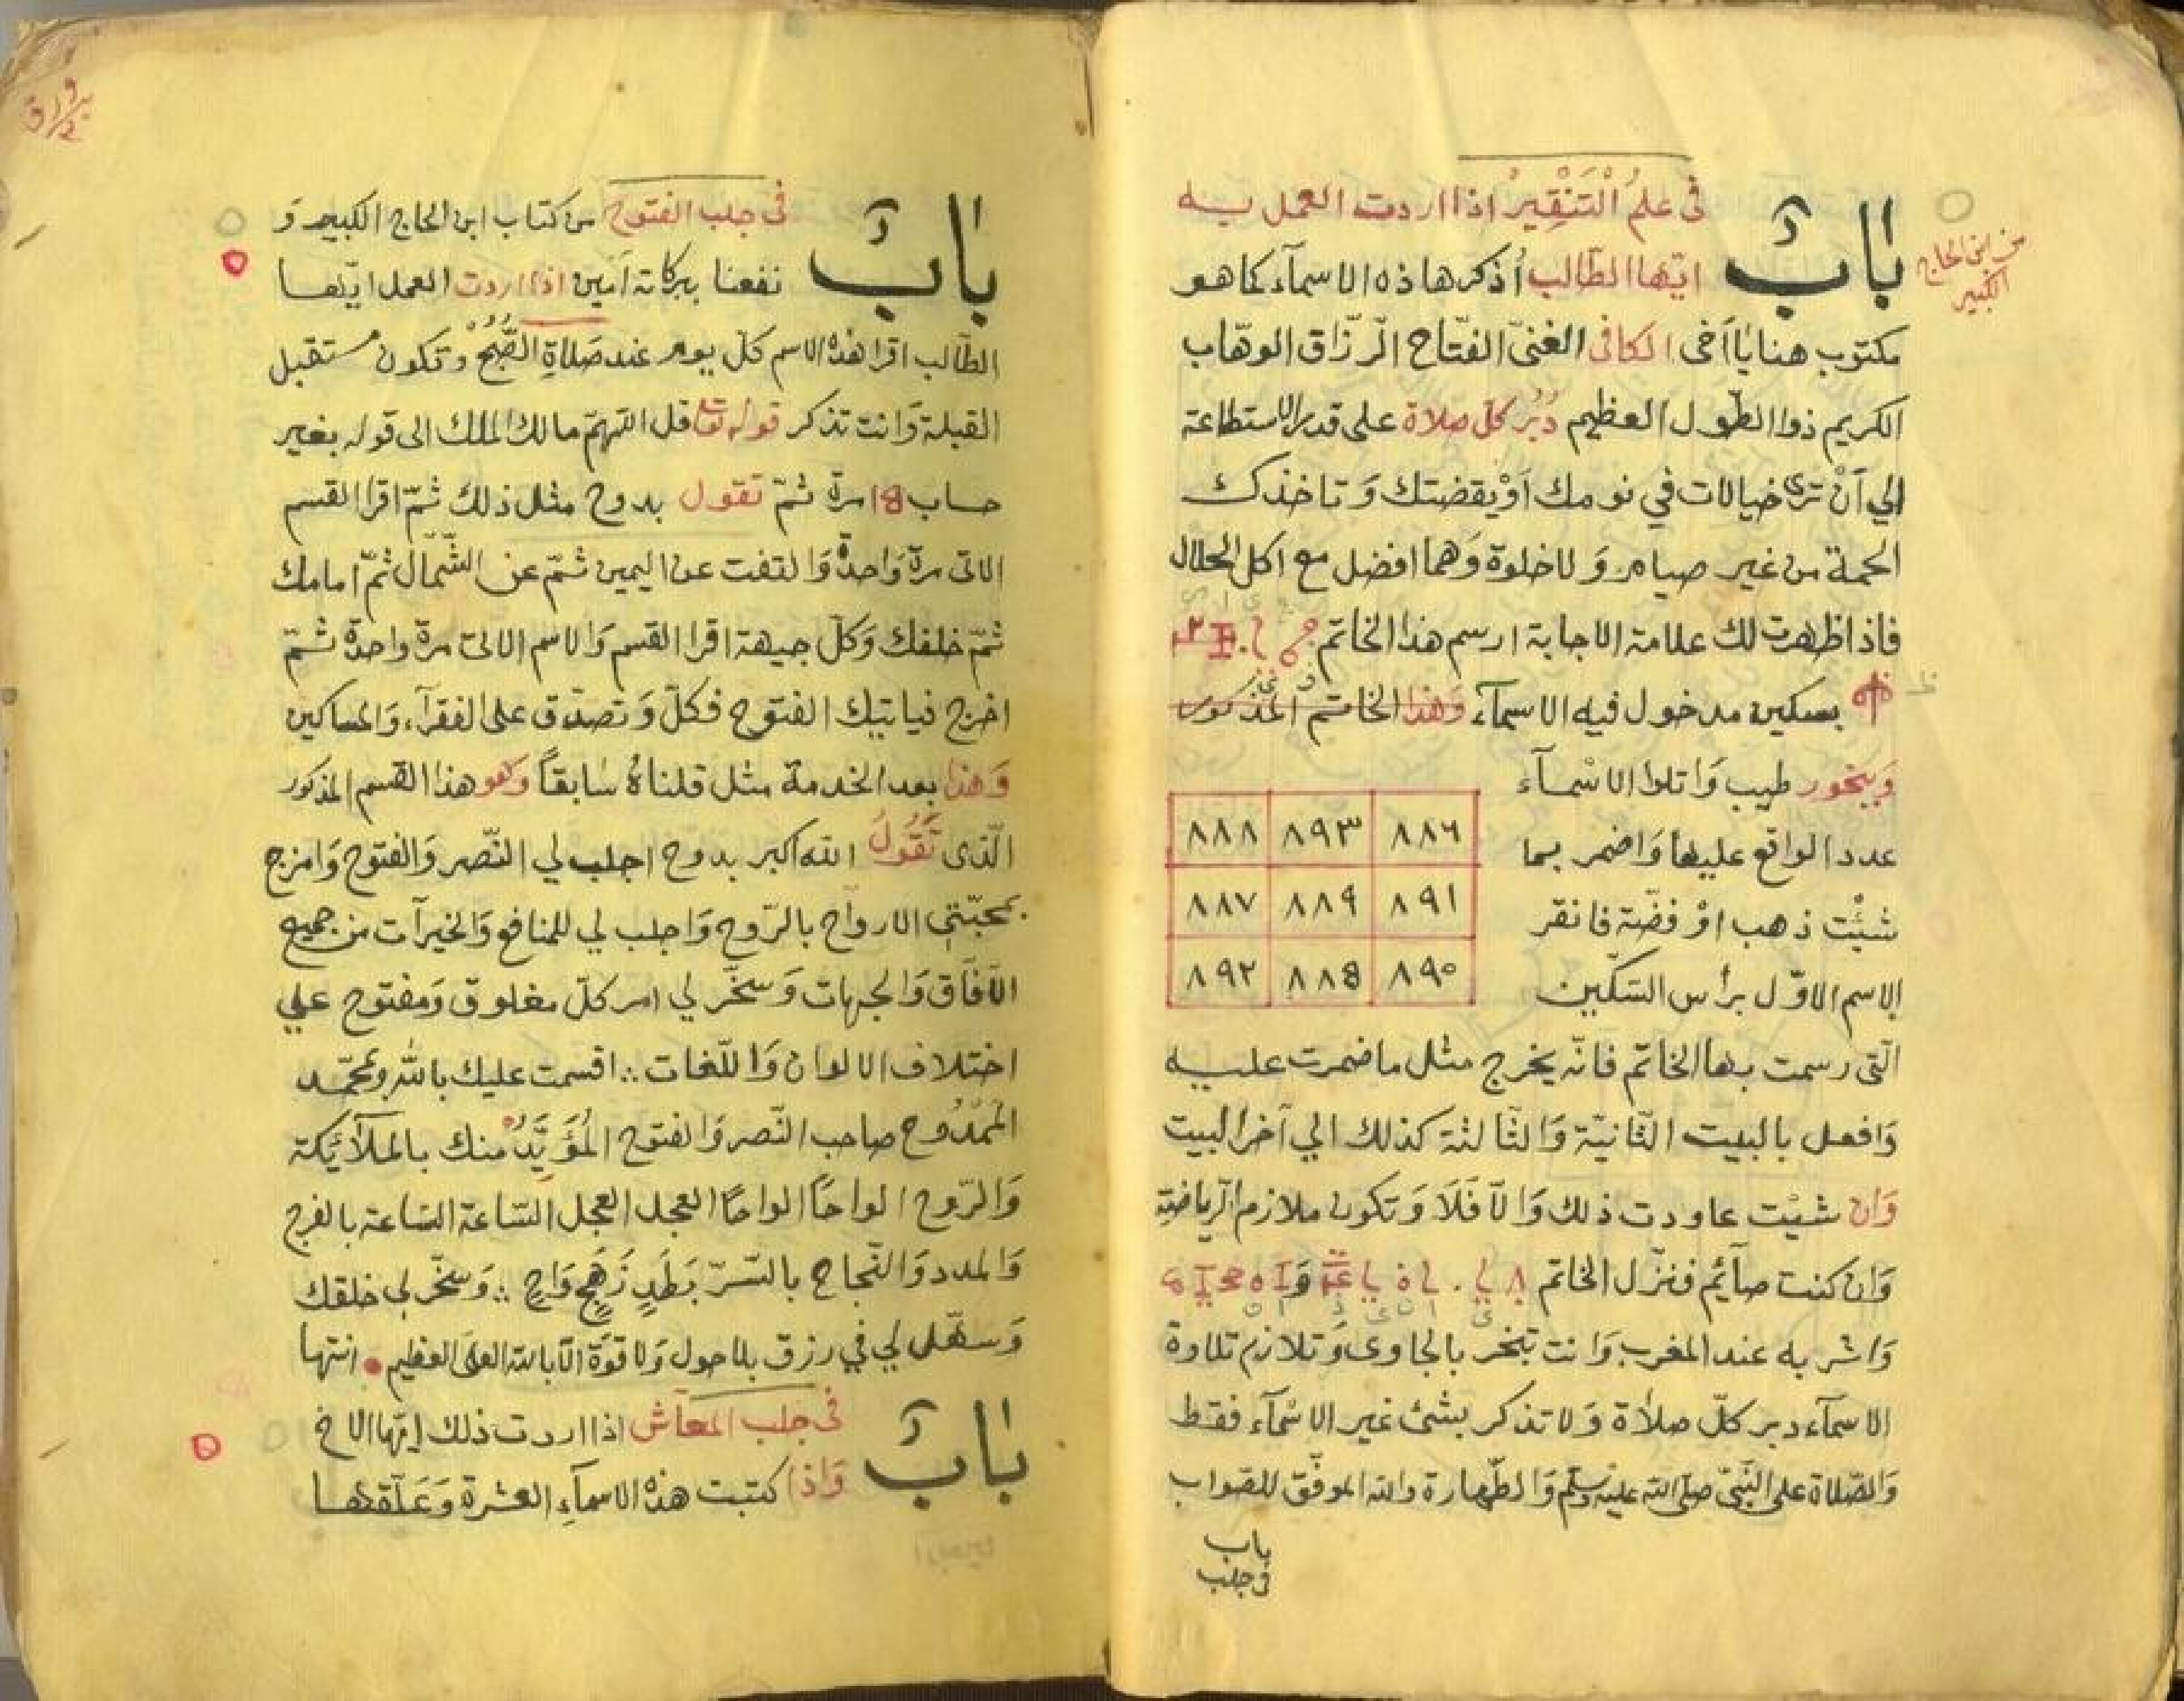 من ابن الحاج
الكبير
باب في علمُ الْتَنْقِيرُ اذا اردت العمل بـه
ايّها الطّالب أُذكر هاذه الاسمآء كما هو
مكتوب هنا يٰا اَخى الكافى الغنىّ الفتّاح الرّزّاق الوهّاب
الكريم ذوا الطّول العظيم دُبُر كلّ صلاة على قدر الاستطاعة
الي اَنْ ترى خيالات في نومك اَوْ يقضتك وَتاخذك
الحمة من غير صيام وَلا خلوة وَهما افضل مع اكل الحلال
فاذا ظهرت لك علامة الاجابة ارسم هذا الخاتم
بسكين مدخول فيه الاسمآء وَهذا الخاتم المذكور
وَبخور طيب وَاتلوا الاسْمآء
عدد الواقع عليها وَاضمر بما
شئْت ذهب اوْ فضّة فانقر
الاسم الاوّل برأس السّكّين
٨٨٦ ٨٩٣ ٨٨٨
٨٩١ ٨٨٩ ٨٨٧
٨٩٥ ٨٨٤ ٨٩٢
الّتى رسمت بها الخاتم فانّه يخرج مثل ما ضمرت عليـه
وَافعل بالبيت الثّانيّة وَالثّالثة كذلك الي آخر البيت
وَان شيْت عاودت ذلك وَالّا فَلَا وَتكون ملازم الرّياضة
وَان كنت صآئم فنزّل الخاتم
وَاشربه عند المغرب وَانت تبخر بالجاوى وَتلازم تلاوة
الاسمآء دبر كلّ صلاٰة وَلا تذكر بشئ غير الاسْمآء فقط
وَالصّلاة على النّبىّ صلّى الله عليه وسلّم وَالطّهارة والله الموفّق للصّواب
باب
فى جلب
باب فى جلب الفتوح من كتاب ابن الحاج الكبير وَ
نفعنا ببركاته اَمين اذا اردت العمل ايّها
الطّالب اقرا هذه الاسم كلّ يوم عند صَلاةِ الصُّبْحُ وَتكون مستقبل
القبلة وَانت تذكر قوله تعا قل اللّهمّ مالك الملك الى قوله بغير
حساب ١٤ مرة ثمّ تقول بدوح مثل ذلك ثمّ اقرا القسم
الاتى مرة وَاحدة وَالتفت عن اليمين ثمّ عن الشّمال ثمّ امامك
ثمّ خلفك وَكلّ جيهة اقرا القسم وَالاسم الاتى مرة واحدة ثمّ
اخرج فياتيك الفتوح فكلّ وَتصدّق على الفقرآء وَالمساكين
وَهذا بعد الخدمة مثل قلناهُ سٰابقاً وَهو هذا القسم المذكور
الّذى تَقُولُ الله اكبر بدوح اجلب لي النّصر وَالفتوح وَامزج
بمحبّتي الارواح بالرّوح وَاجلب لي للمنافع وَالخيرآت من جميع
الاٰفاق وَالجهات وَسخّر لي امر كلّ مغلوق وَمفتوح علي
اختلاف الالوان وَاللّغات ∴ اقسمت عليك بالله وبمحمّد
المَمْدُوح صاحب النّصر وَالفتوح المُؤَيَّدُ منك بالملآئكة
وَالرّوح الواحًا الواحًا العجل العجل السّاعة السّاعة بالفرج
وَالمدد وَالنّجاح بالسّرّ بَطَدٍ زَهَجٍ وَاحٍ ∴ وَسخّر لي خلقك
وَسهّل لي في رزق بلا حول وَلا قوّة الّا بالله العلىّ العظيم • انتها
باب فى جلب المعاش اذا اردت ذلك ايّها الاخ
وَاذا كتبت هذه الاسمآءِ العشرة وَعَلّقتها